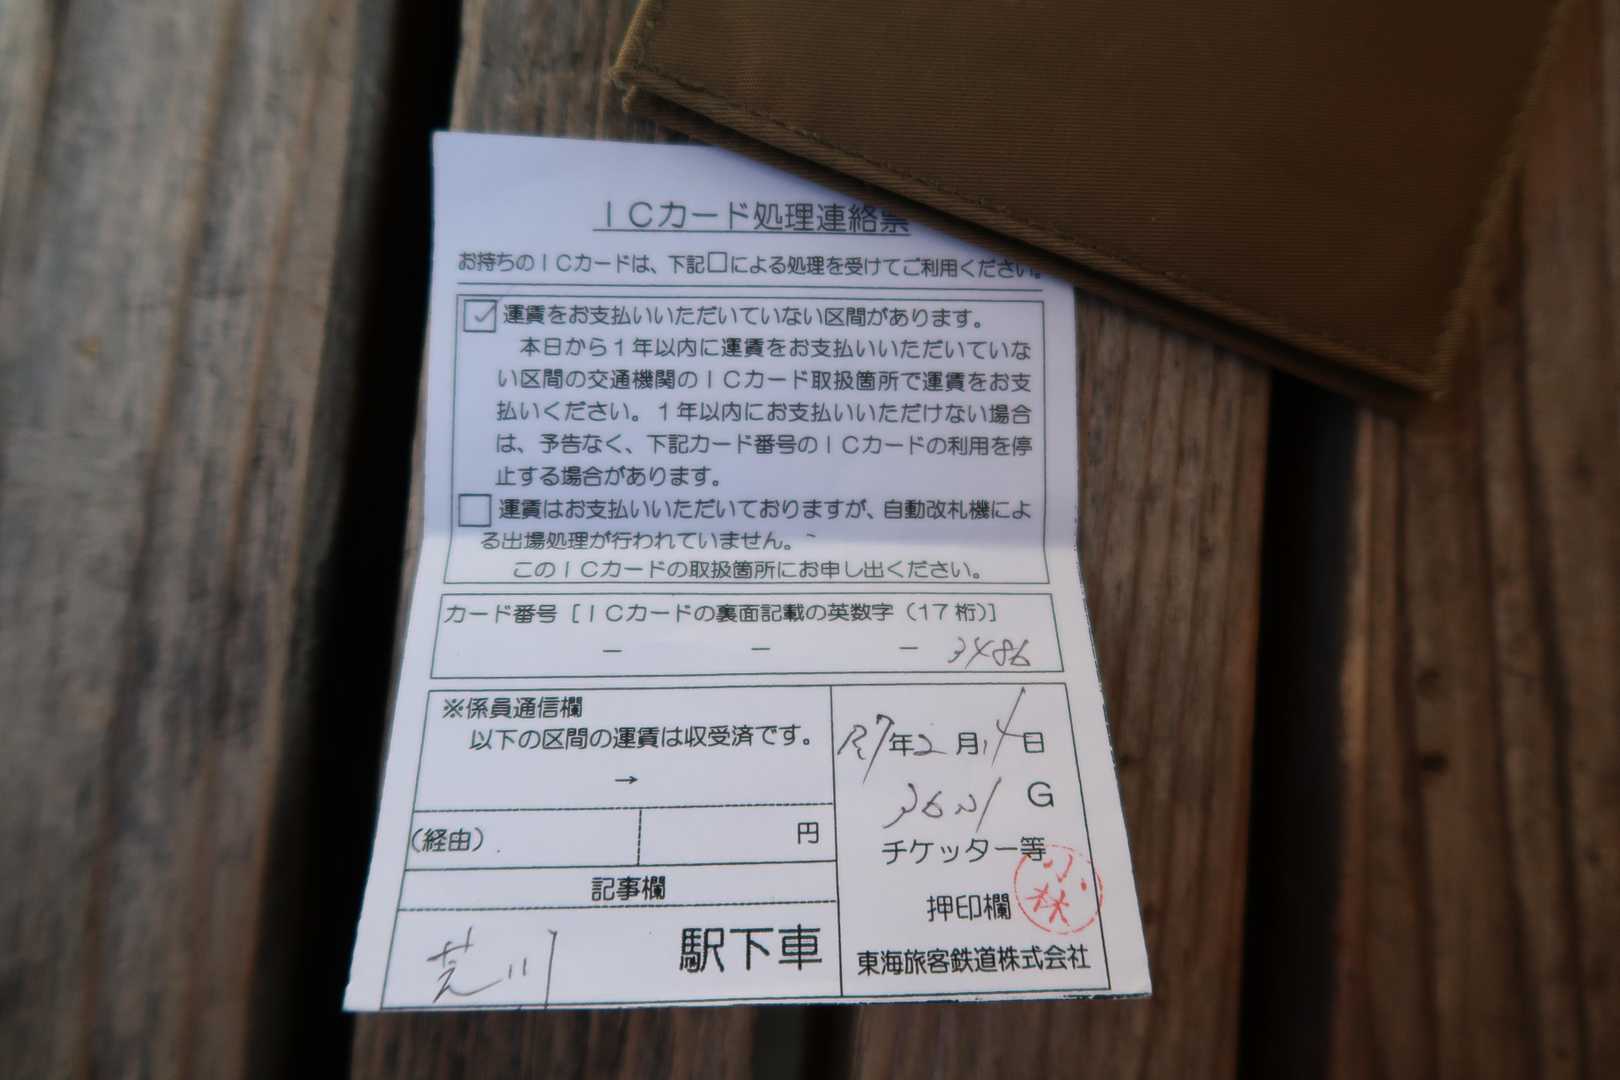 ICカード処理連絡票
お持ちのICカードは、下記□による処理を受けてご利用ください。
運賃をお支払いいただいていない区間があります。
本日から1年以内に運賃をお支払いいただいていな
い区間の交通機関のICカード取扱箇所で運賃をお支
払いください。1年以内にお支払いいただけない場合
は、予告なく、下記カード番号のICカードの利用を停
止する場合があります。
運賃はお支払いいただいておりますが、自動改札機によ
る出場処理が行われていません。
このICカードの取扱箇所にお申し出ください。
カード番号[ICカードの裏面記載の英数字(17桁)]
－ － － 3486
※係員通信欄
以下の区間の運賃は収受済です。
→
(経由)
円
記事欄
駅下車
R7年2月14日
G
チケッター等
押印欄
東海旅客鉄道株式会社